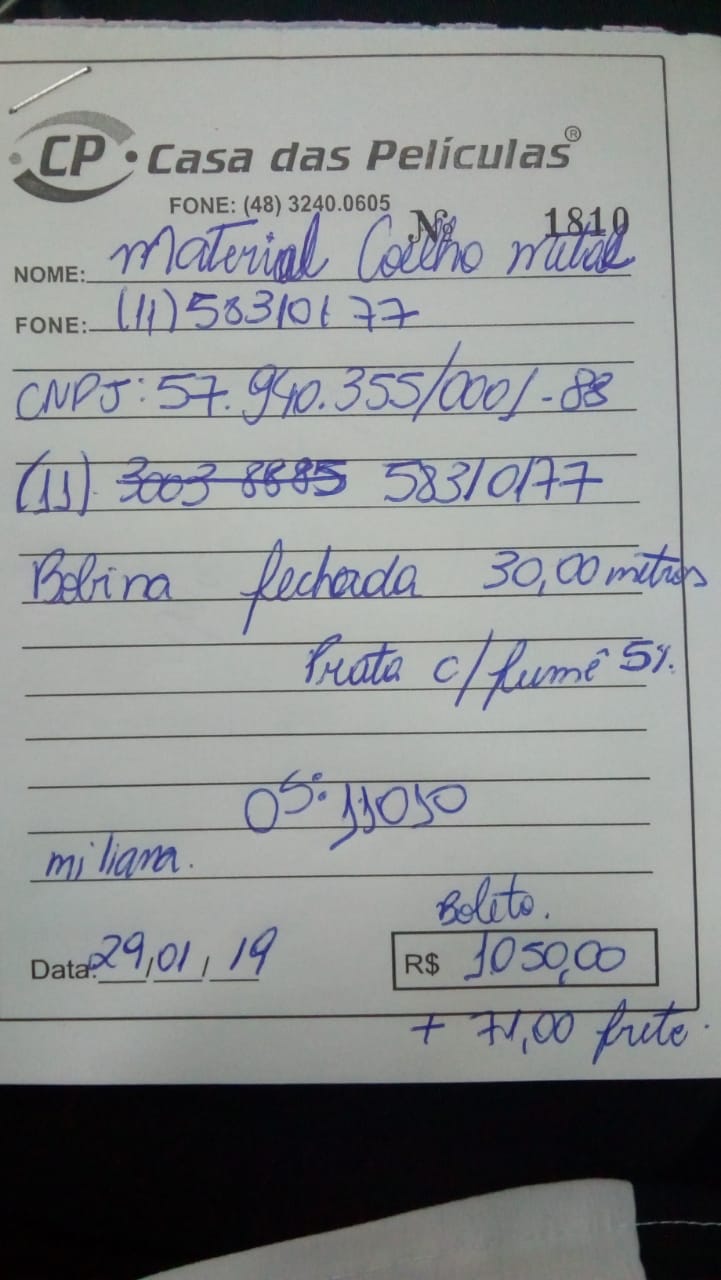 CP • Casa das Películas®
FONE: (48) 3240.0605
Nº 1810
NOME: Material Coelho metal
FONE: (11) 58310177
CNPJ: 57.940.355/0001-88
(11) 3003 8885 58310177
Bobina fechada 30,00 metros
Prata c/ fumê 5%.
OS: 11010
miliana.
Boleto.
Data: 29/01/19 R$ 1050,00
+ 71,00 frete.